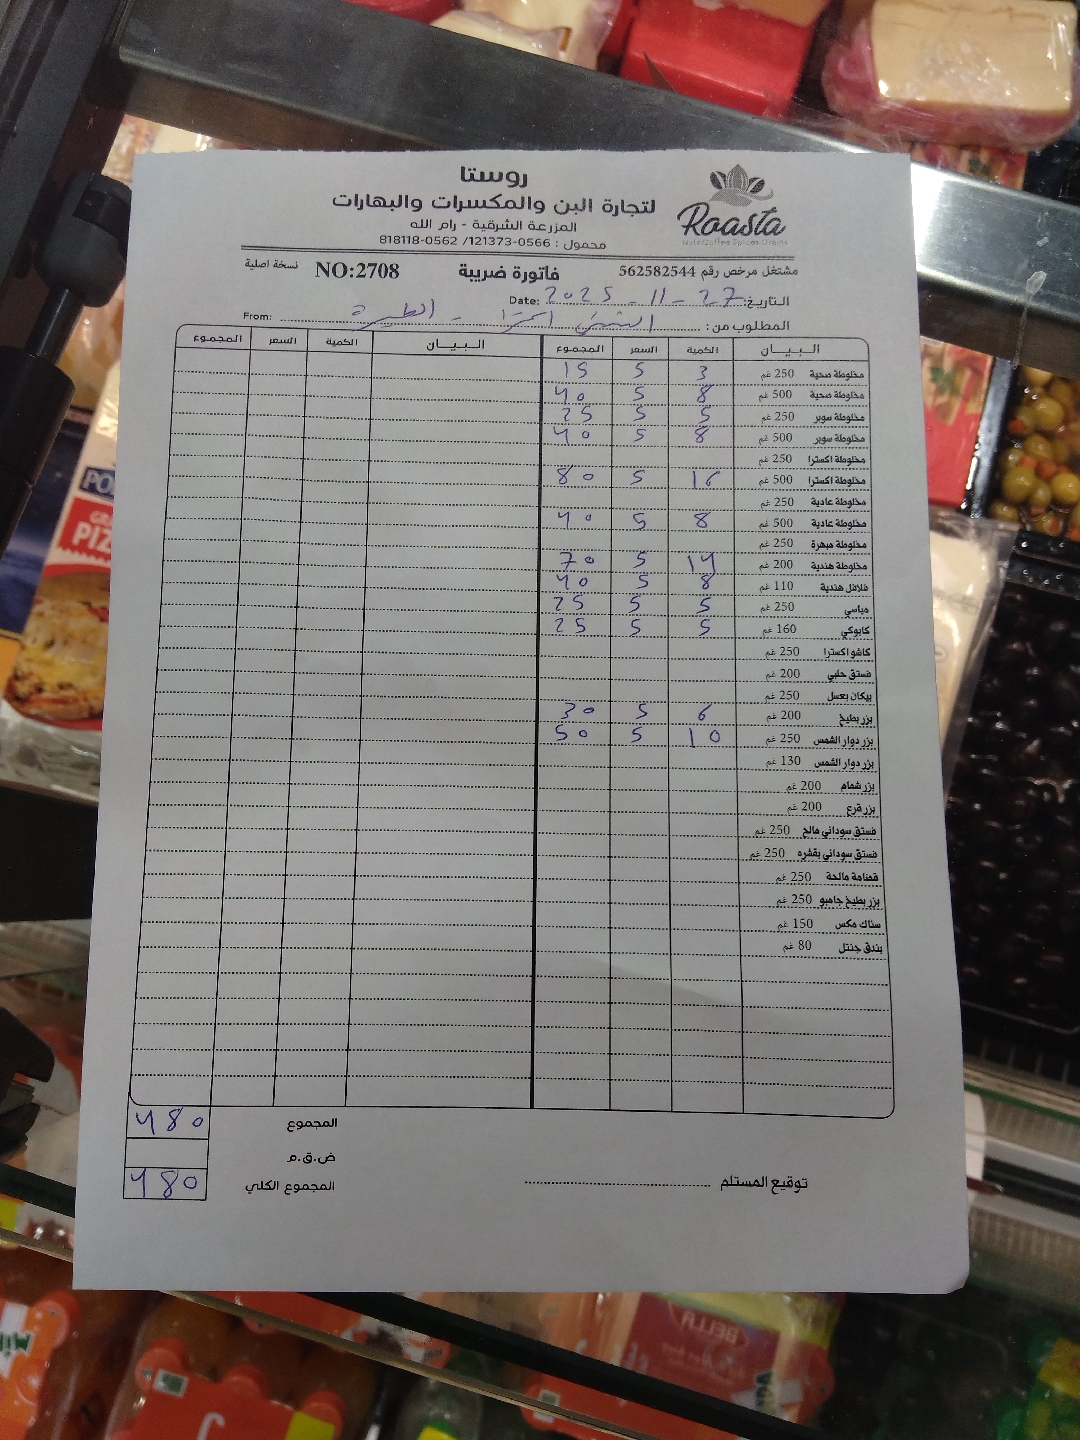 روستا
لتجارة البن والمكسرات والبهارات
المزرعة الشرقية - رام الله
محمول : 0566-121373/ 0562-818118
Roasta
Nuts Coffee Spices Grains
مشتغل مرخص رقم 562582544 فاتورة ضريبية NO:2708 نسخة اصلية
التاريخ: 27-11-2025 Date:
المطلوب من: الطيرة From:
البيان الكمية السعر المجموع البيان الكمية السعر المجموع
مخلوطة صحية 250 غم 3 5 15
مخلوطة صحية 500 غم 8 5 40
مخلوطة سوبر 250 غم 5 5 25
مخلوطة سوبر 500 غم 8 5 40
مخلوطة اكسترا 250 غم
مخلوطة اكسترا 500 غم 16 5 80
مخلوطة عادية 250 غم
مخلوطة عادية 500 غم 8 5 40
مخلوطة مبهرة 250 غم
مخلوطة هندية 200 غم 14 5 70
فلافل هندية 110 غم 8 5 40
مياسي 250 غم 5 5 25
كابوكي 160 غم 5 5 25
كاشو اكسترا 250 غم
فستق حلبي 200 غم
بيكان بعسل 250 غم
بزر بطيخ 200 غم 6 5 30
بزر دوار الشمس 250 غم 10 5 50
بزر دوار الشمس 130 غم
بزر شمام 200 غم
بزر قرع 200 غم
فستق سوداني مالح 250 غم
فستق سوداني بقشره 250 غم
قضامة مالحة 250 غم
بزر بطيخ جامبو 250 غم
سناك مكس 150 غم
بندق جنتل 80 غم
المجموع 480
ض.ق.م
المجموع الكلي 480
توقيع المستلم